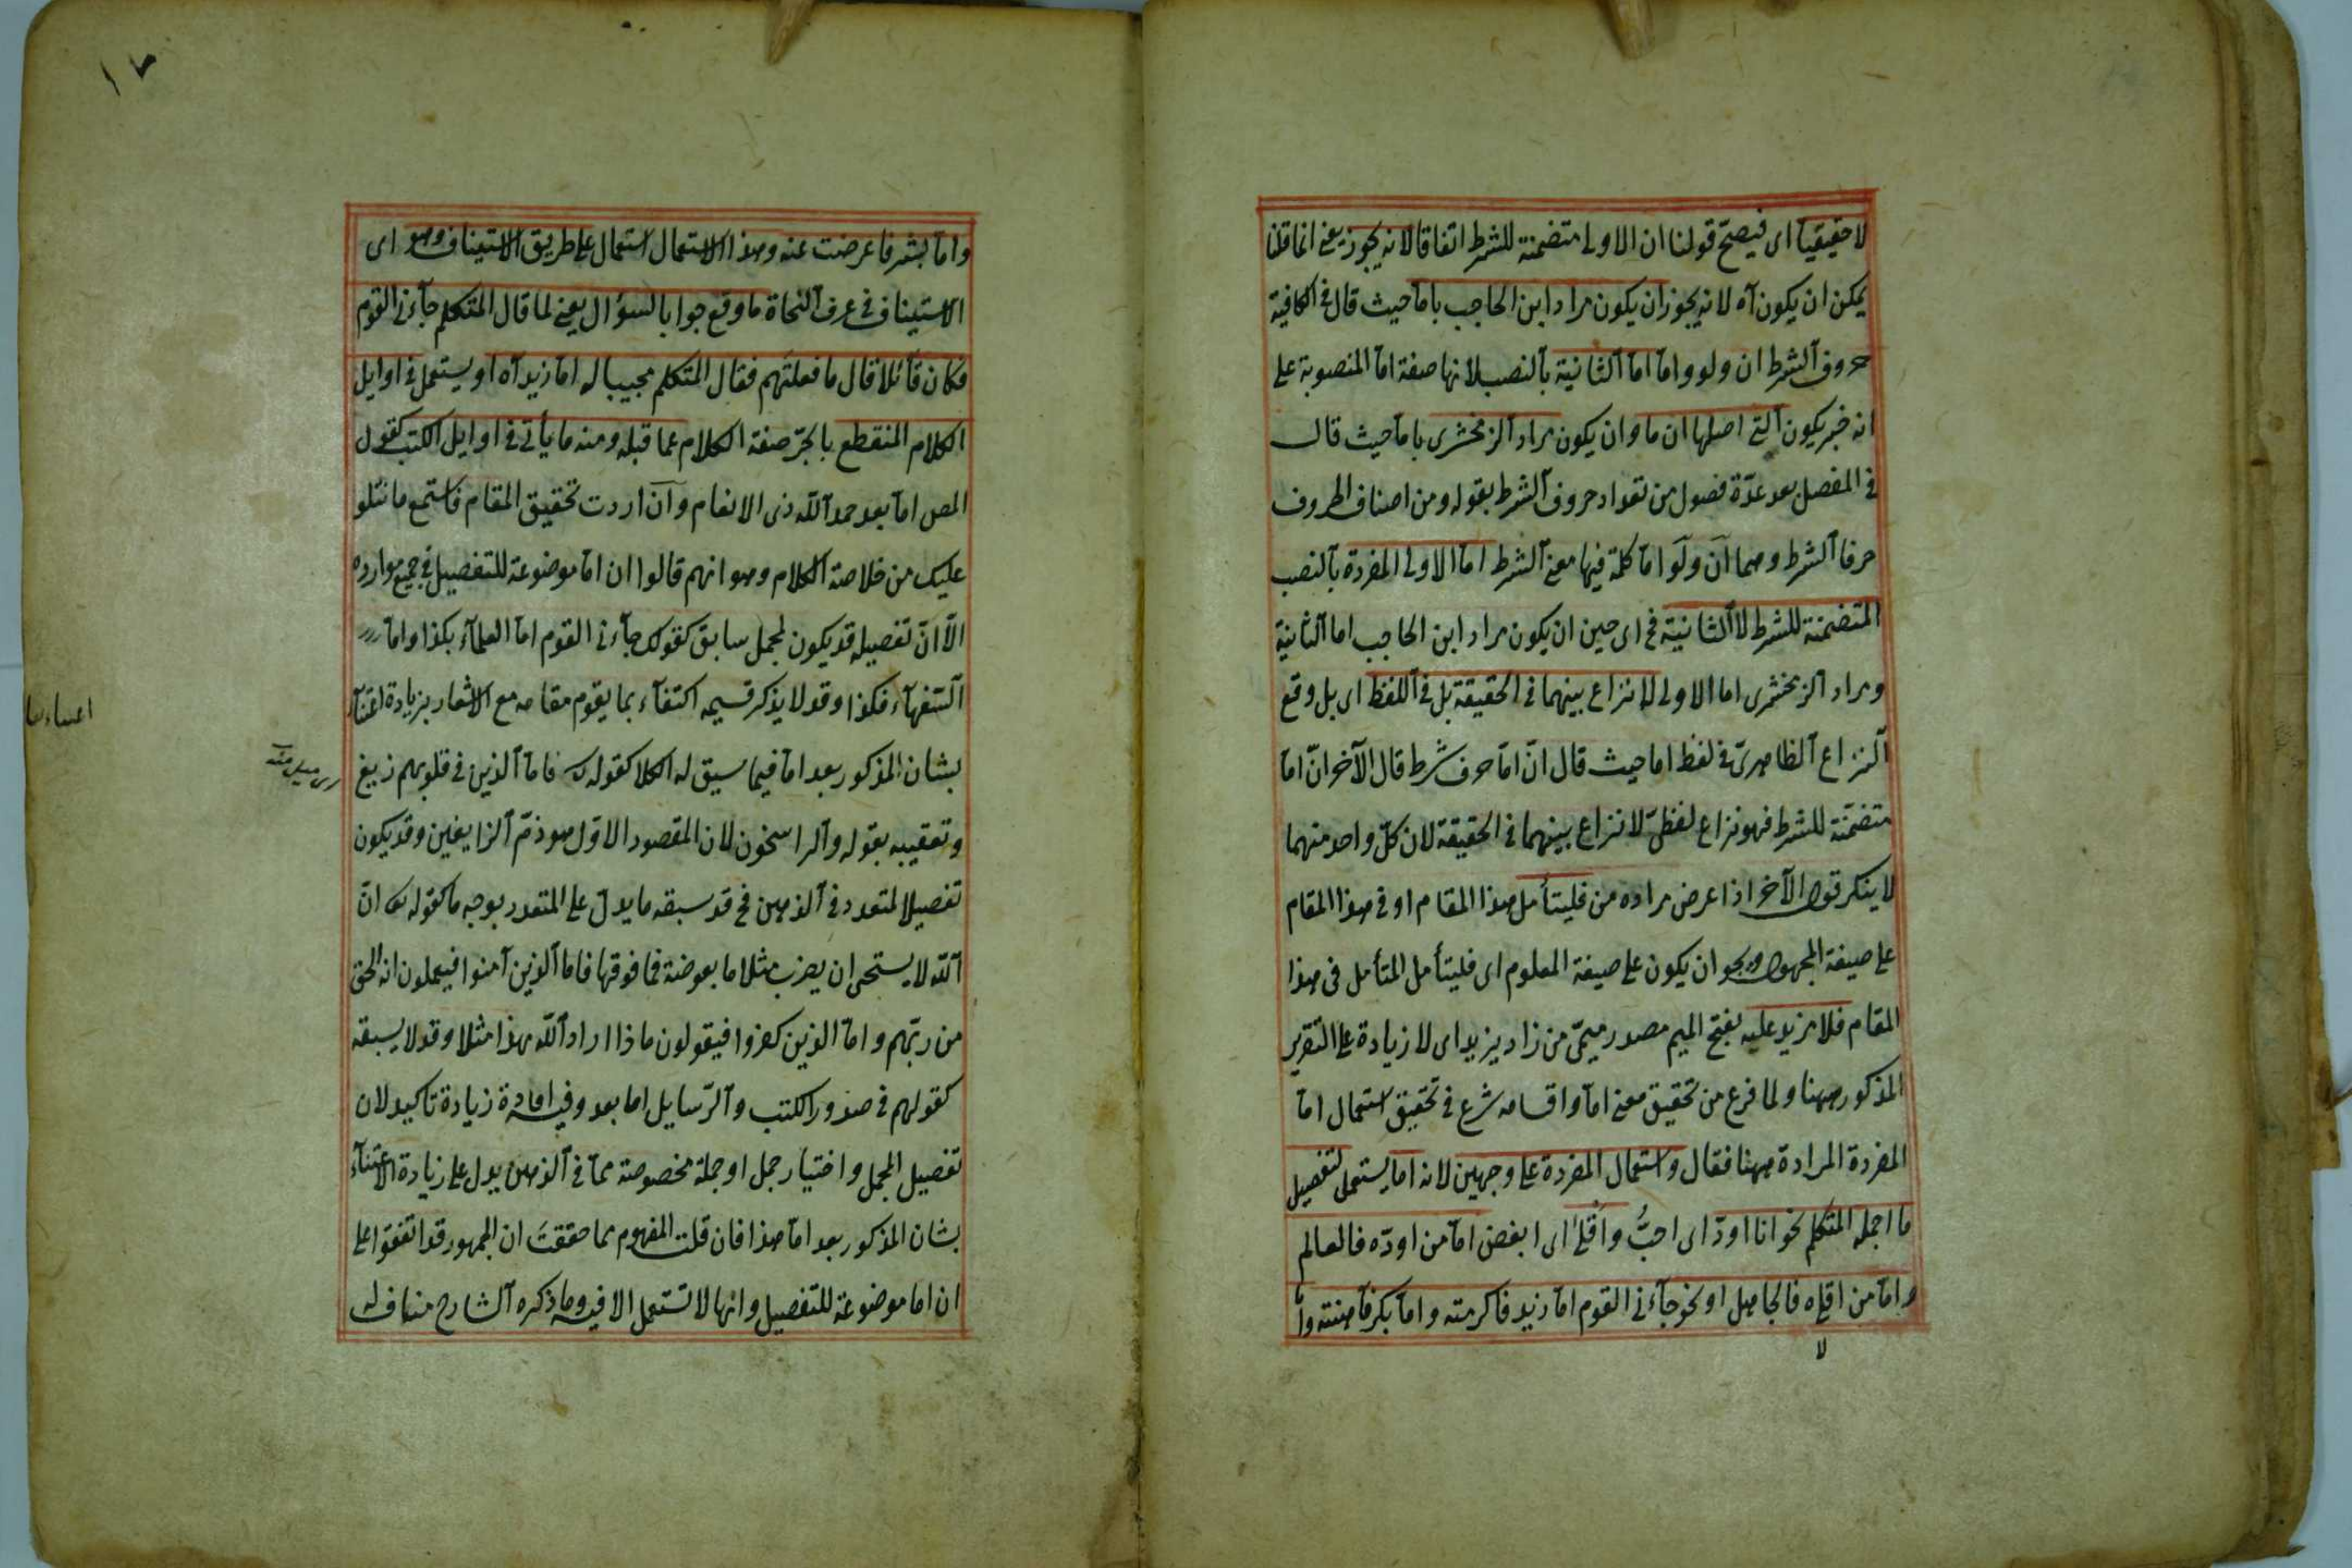 لا حقيقيا اى فيصح قولنا ان الاولى متضمنة للشرط اتفاقا لانه يجوز يعنى انما قلنا
يمكن ان يكون آه لانه يجوز ان يكون مراد ابن الحاجب باما حيث قال فى الكافية
حروف الشرط ان ولو واما اما الثانية بالنصب لانها صفة اما المنصوبة على
انه خبر يكون التى اصلها ان ما وان يكون مراد الزمخشرى باما حيث قال
فى المفصل بعد عدّة فصول من تعداد حروف الشرط بقوله ومن اصناف الحروف
حرفا الشرط وهما ان ولو اما كلمة فيها معنى الشرط اما الاولى المفردة بالنصب
المتضمنة للشرط لا الثانية فح اى حين ان يكون مراد ابن الحاجب اما الثانية
ومراد الزمخشرى اما الاولى لا نزاع بينهما فى الحقيقة بل فى اللفظ اى بل وقع
النزاع الظاهرىّ فى لفظ اما حيث قال انّ اما حرف شرط قال الآخر انّ اما
متضمّنة للشرط فهو نزاع لفظىّ لا نزاع بينهما فى الحقيقة لان كلّ واحد منهما
لا ينكر قول الآخر اذا عرض مراده من فليتأمل هذا المقام او فى هذا المقام
على صيغة المجهول ويجو ان يكون على صيغة المعلوم اى فليتأمل المتأمل فى هذا
المقام فلا مزيد عليه بفتح الميم مصدر ميمىّ من زاد يزيد اى لا زيادة على التقرير
المذكور ههنا ولما فرغ من تحقيق معنى اما واقسامه شرع فى تحقيق استعمال اما
المفردة المرادة ههنا فقال واستعمال المفردة على وجهين لانه اما يستعمل لتفصيل
ما اجمله المتكلم نحو انا اودّ اى احبُّ واقلى اى ابغض اما من اودّه فالعالم
واما من اقليه فالجاهل او نحو جآءنى القوم اما زيد فاكرمته واما بكر فاهنته واما
واما بشر فاعرضت عنه وهذا الاستعمال استعمال على طريق الاستيناف وهو اى
الاستيناف فى عرف النحاة ما وقع جوابا لسؤال يعنى لما قال المتكلم جآءنى القوم
فكان قآئلا قال ما فعلتهم فقال المتكلم مجيبا له اما زيد آه او يستعمل فى اوايل
الكلام المنقطع بالجرّ صفة الكلام عما قبله ومنه ما يأتى فى اوايل الكتب كقول
المص اما بعد حمد اللّه ذى الانعام وان اردت تحقيق المقام فاستمع ما نتلو
عليك من خلاصة الكلام وهو انهم قالوا ان اما موضوعة للتفصيل فى جميع موارده
الّا انّ تفصيله قد يكون لمجمل سابق كقولك جآءنى القوم اما العلمآء بكذا واما
السّفهآء فكذا وقد لا يذكر قسيمه اكتفآء بما يقوم مقامه مع الاشعار بزيادة اعتنآء
بشان المذكور بعد اما فيما سيق له الكلا كقوله فاما الذين فى قلوبهم زيغ
وتعقيبه بقوله والراسخون لان المقصود الاوّل هو ذمّ الزايغين وقد يكون
تفصيلا لمتعدد فى الذهن فح قد سبقه ما يدل على المتعدد بوجه ما كقوله انّ
اللّه لا يستحى ان يضرب مثلا ما بعوضة فما فوقها فاما الذين آمنوا فيعلمون انه الحق
من ربّهم واما الذين كفروا فيقولون ماذا اراد اللّه بهذا مثلا وقد لا يسبقه
كقولهم فى صدور الكتب والرّسايل اما بعد وفيه افادة زيادة تاكيد لان
تفصيل المجمل واختيار جمل او جملة مخصوصة مما فى الذهن يدل على زيادة الاعتنآء
بشان المذكور بعد اما هذا فان قلت المفهوم مما حققتَ ان الجمهور قد اتفقوا على
ان اما موضوعة للتفصيل وانها لا تستعمل الا فيه وما ذكره الشارح مناف له